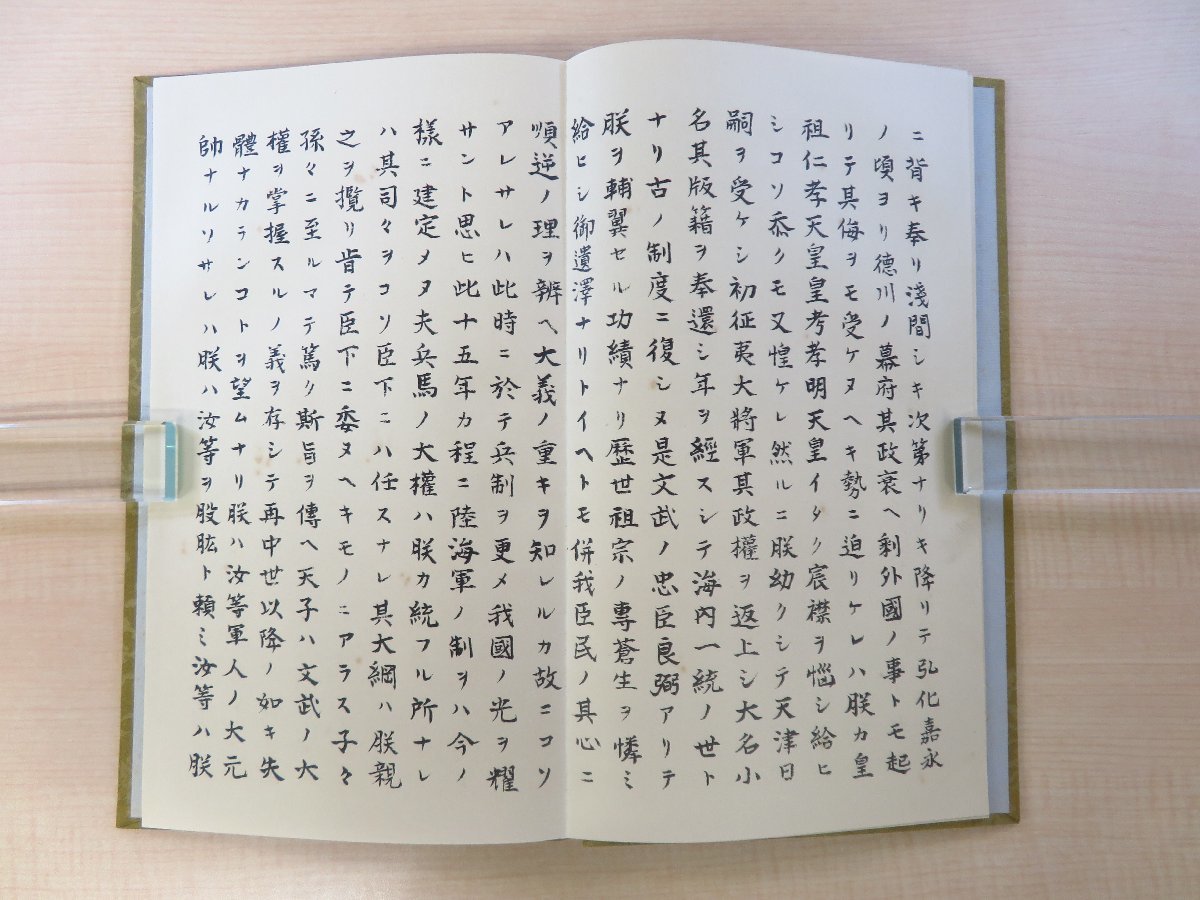 ニ背キ奉リ淺間シキ次第ナリキ降リテ弘化嘉永
ノ頃ヨリ德川ノ幕府其政衰ヘ剩外國ノ事トモ起
リテ其侮ヲモ受ケヌヘキ勢ニ迫リケレハ朕カ皇
祖仁孝天皇皇考孝明天皇イタク宸襟ヲ惱シ給ヒ
シコソ忝クモ又惶ケレ然ルニ朕幼クシテ天津日
嗣ヲ受ケシ初征夷大將軍其政權ヲ返上シ大名小
名其版籍ヲ奉還シ年ヲ經スシテ海內一統ノ世ト
ナリ古ノ制度ニ復シヌ是文武ノ忠臣良弼アリテ
朕ヲ輔翼セル功績ナリ歷世祖宗ノ專蒼生ヲ憐ミ
給ヒシ御遺澤ナリトイヘトモ併我臣民ノ其心ニ
順逆ノ理ヲ辨ヘ大義ノ重キヲ知レルカ故ニコソ
アレサレハ此時ニ於テ兵制ヲ更メ我國ノ光ヲ耀
サント思ヒ此十五年カ程ニ陸海軍ノ制ヲハ今ノ
樣ニ建定メヌ夫兵馬ノ大權ハ朕カ統フル所ナレ
ハ其司々ヲコソ臣下ニハ任スナレ其大綱ハ朕親
之ヲ攬リ肯テ臣下ニ委ヌヘキモノニアラス子々
孫々ニ至ルマテ篤ク斯旨ヲ傳ヘ天子ハ文武ノ大
權ヲ掌握スルノ義ヲ存シテ再中世以降ノ如キ失
體ナカランコトヲ望ムナリ朕ハ汝等軍人ノ大元
帥ナルソサレハ朕ハ汝等ヲ股肱ト賴ミ汝等ハ朕